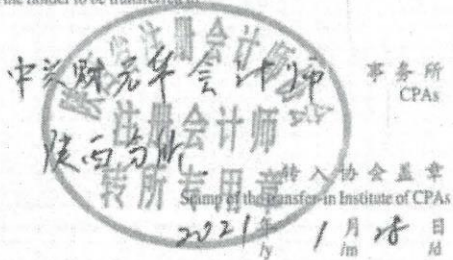 the holder to be transferred to
中兴财光华会计师 事务所
CPAs
陕西分所
注册会计师
转所专用章
转入协会盖章
Stamp of the transfer-in Institute of CPAs
2021年 1月 28日
/y /m /d